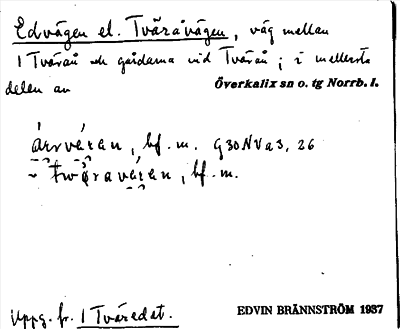 Edvägen el. Tväråvägen, väg mellan
1 Tväråä och gårdarna vid Tväråä; i mellersta
delen av
Överkalix sn o. tg Norrb. l.
bf. m. G30NVa3, 26
bf. m.
Uppg. fr. 1 Tväredat.
EDVIN BRÄNNSTRÖM 1937